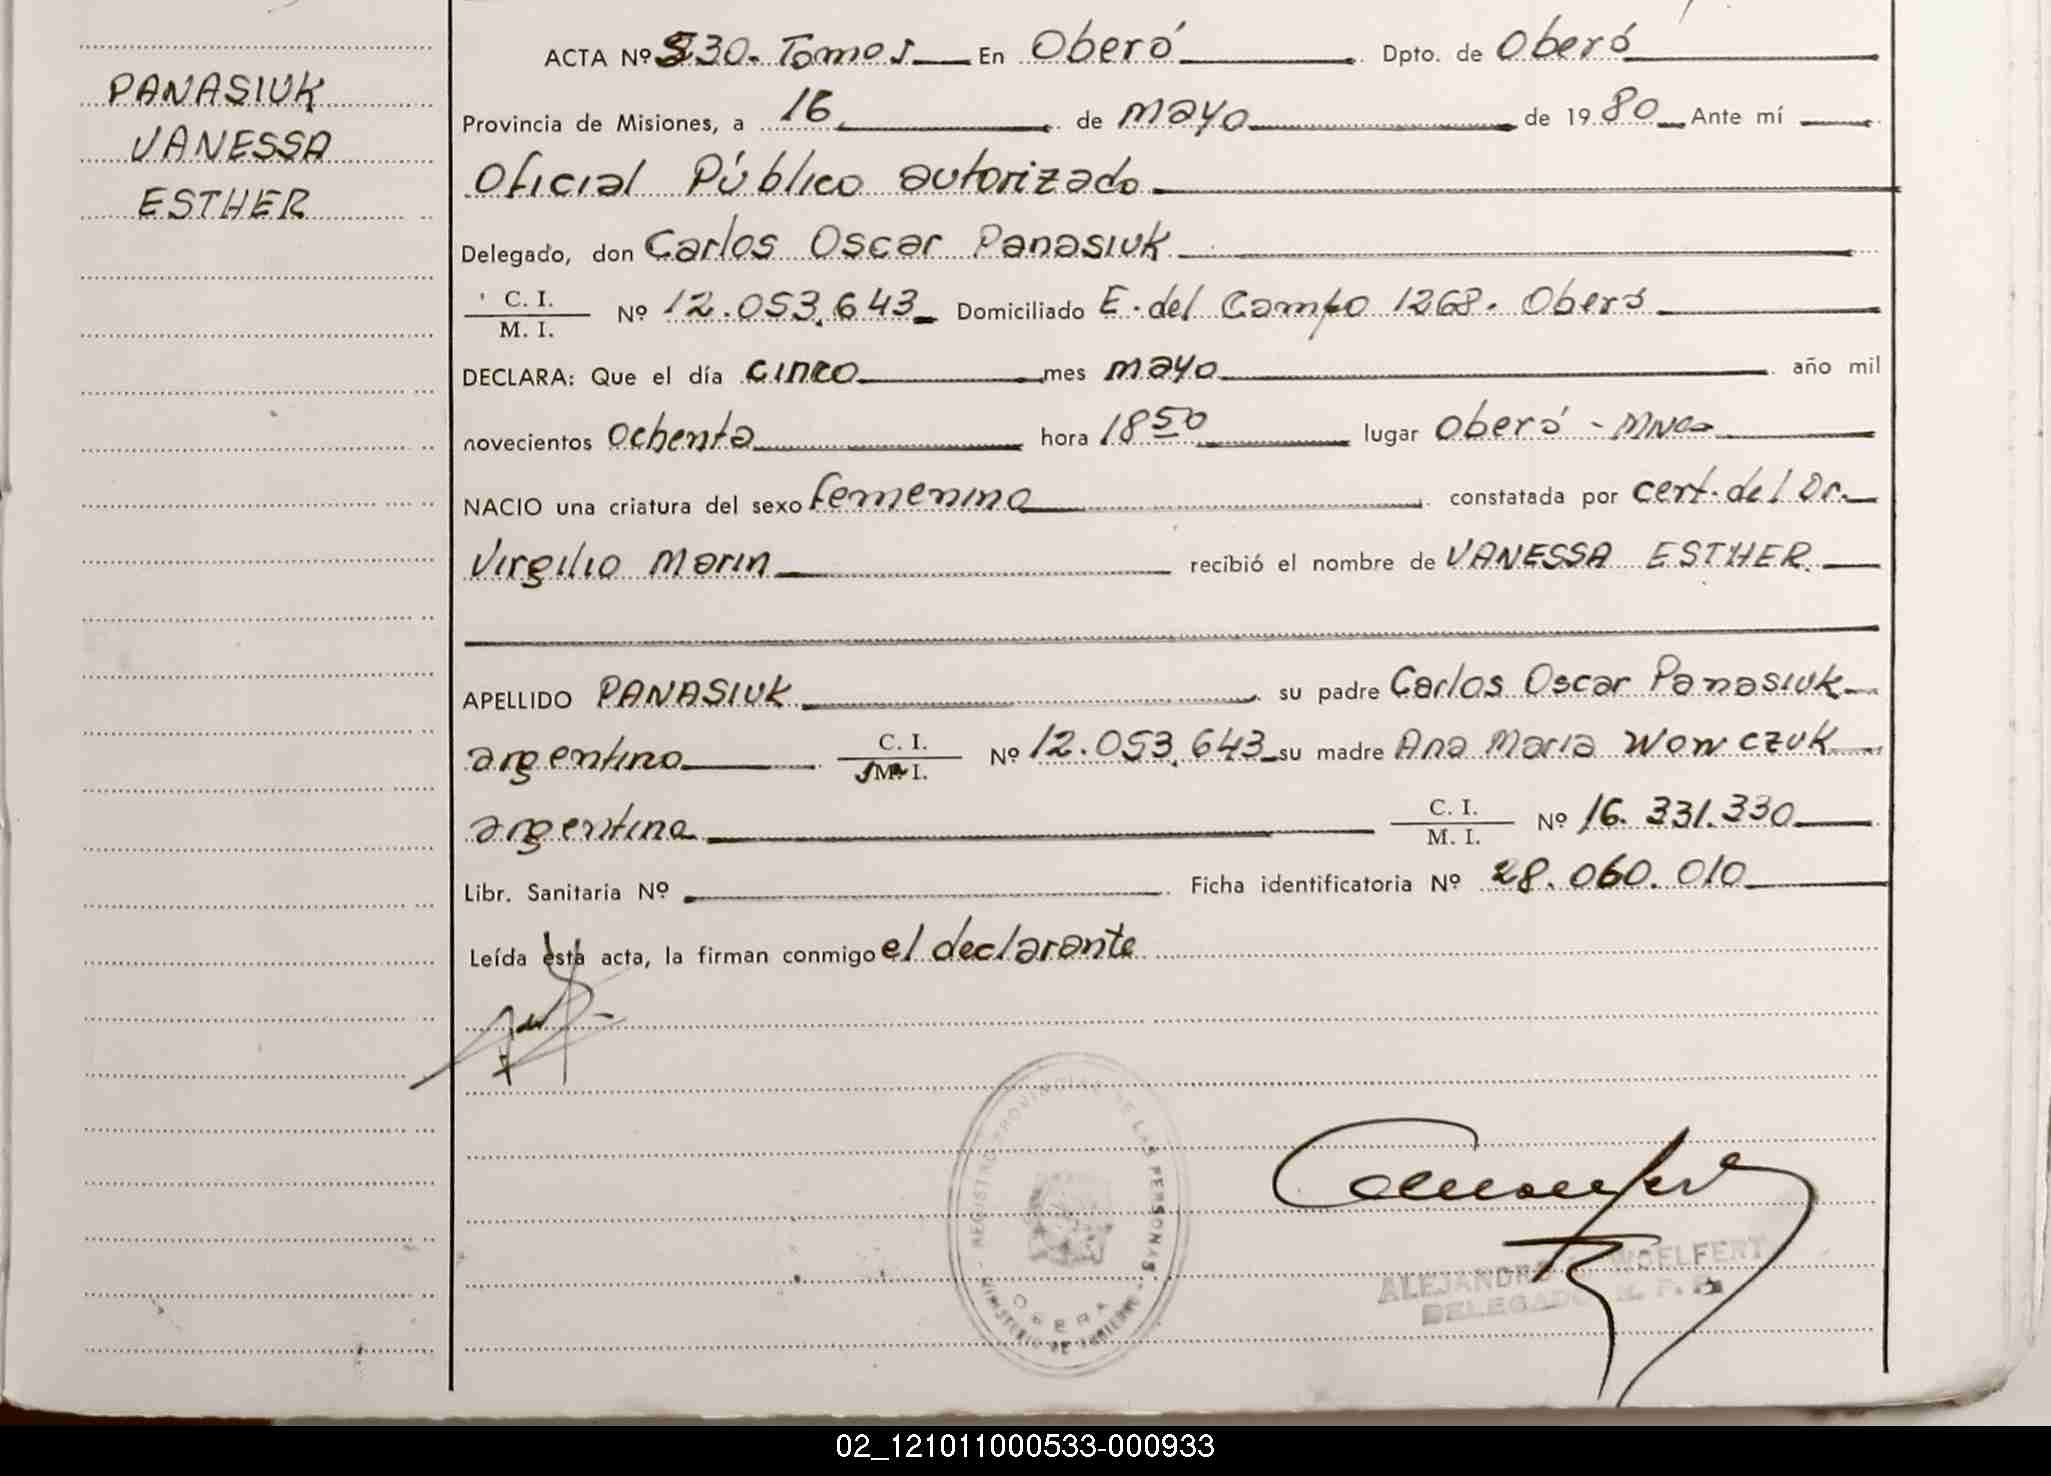 PANASIUK
VANESSA
ESTHER
ACTA Nº 530. Tomo I En Oberá Dpto. de Oberá
Provincia de Misiones, a 16 de mayo de 1980 Ante mí
Oficial Público autorizado
Delegado, don Carlos Oscar Panasiuk
C. I. / M. I. Nº 12.053.643 Domiciliado E. del Campo 1268. Oberá
DECLARA: Que el día cinco mes mayo año mil
novecientos ochenta hora 18 50 lugar Oberá - Mnes
NACIO una criatura del sexo femenino constatada por cert. del Dr.
Virgilio Marin recibió el nombre de VANESSA ESTHER.
APELLIDO PANASIUK su padre Carlos Oscar Panasiuk
argentino C. I. / M. I. Nº 12.053.643 su madre Ana Maria Wowczuk
argentina C. I. / M. I. Nº 16.331.330
Libr. Sanitaria Nº Ficha identificatoria Nº 28.060.010
Leída esta acta, la firman conmigo el declarante
REGISTRO PROVINCIAL DE LAS PERSONAS
MINISTERIO DE GOBIERNO
OBERA
ALEJANDRO WOELFERT
DELEGADO R. P. P.
02_121011000533-000933